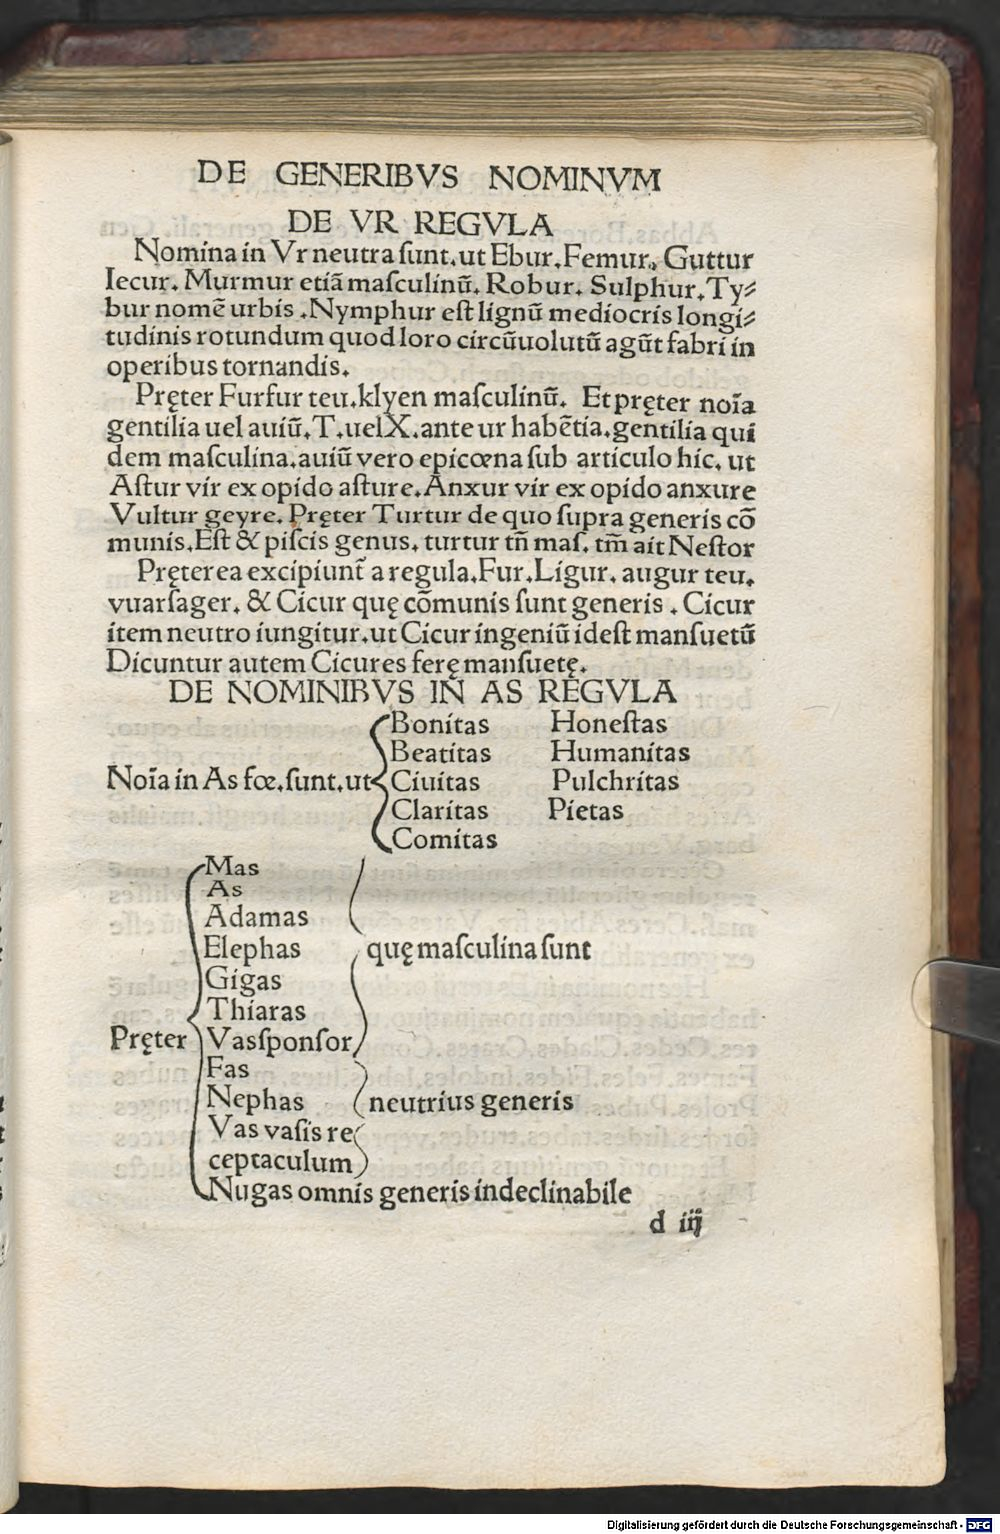 DE GENERIBVS NOMINVM
DE VR REGVLA
Nomina in Vr neutra ſunt. ut Ebur. Femur. Guttur
Iecur. Murmur etiã maſculinũ. Robur. Sulphur. Ty⸗
bur nomẽ urbis. Nymphur eſt lignũ mediocris longi⸗
tudinis rotundum quod loro circũuolutũ agũt fabri in
operibus tornandis.
Pręter Furfur teu. klyen maſculinũ. Et pręter noĩa
gentilia uel auiũ. T. uel X. ante ur habẽtia. gentilia qui
dem maſculina. auiũ vero epicœna ſub articulo hic. ut
Aſtur vir ex opido aſture. Anxur vir ex opido anxure
Vultur geyre. Pręter Turtur de quo ſupra generis cõ
munis. Eſt & piſcis genus. turtur tñ maſ. tm̃ ait Neſtor
Pręterea excipiunt̃ a regula. Fur. Ligur. augur teu.
vuarſager. & Cicur quę cõmunis ſunt generis. Cicur
item neutro iungitur. ut Cicur ingeniũ ideſt manſuetũ
Dicuntur autem Cicures ferę manſuetę.
DE NOMINIBVS IN AS REGVLA
Bonitas Honeſtas
Beatitas Humanitas
Noĩa in As fœ. ſunt. ut Ciuitas Pulchritas
Claritas Pietas
Comitas
Mas
As
Adamas
Elephas quę maſculina ſunt
Gigas
Thiaras
Pręter Vas ſponſor
Fas
Nephas neutrius generis
Vas vaſis re
ceptaculum
Nugas omnis generis indeclinabile
d iij
Digitalisierung gefördert durch die Deutsche Forschungsgemeinschaft - DFG